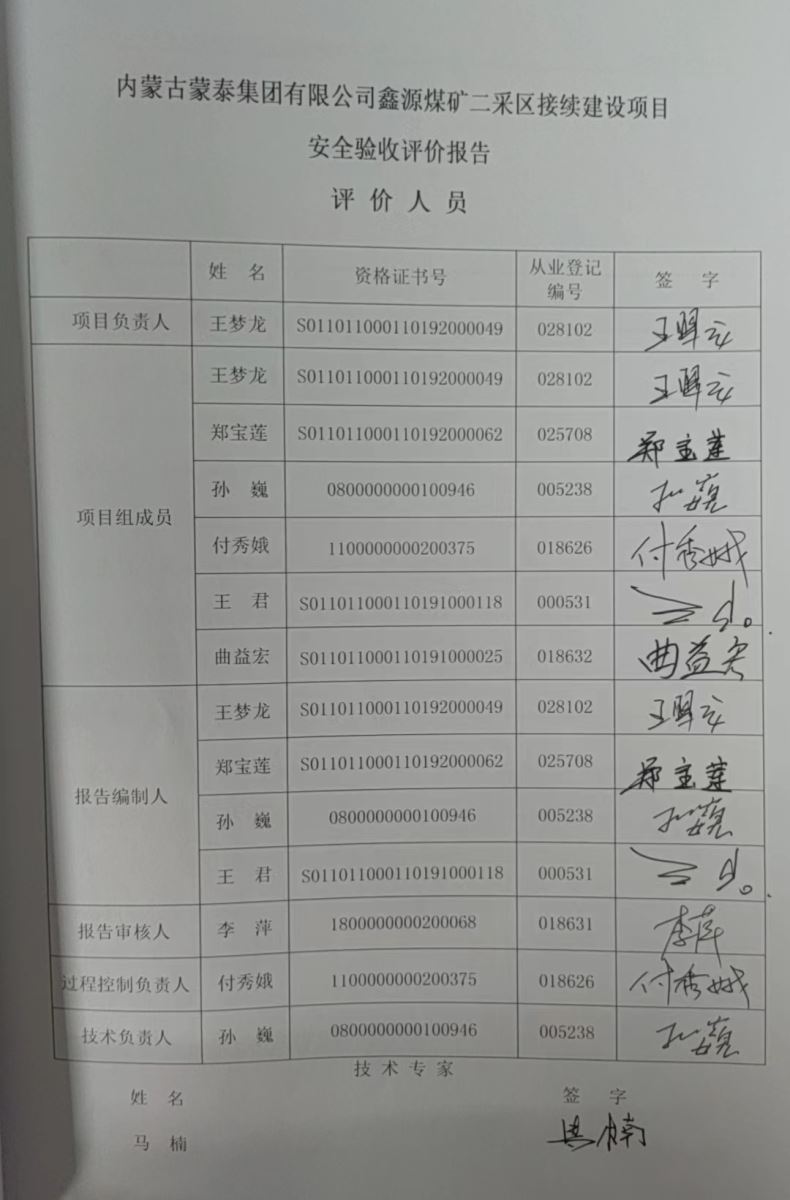 内蒙古蒙泰集团有限公司鑫源煤矿二采区接续建设项目
安全验收评价报告
评 价 人 员
姓 名 资格证书号 从业登记编号 签 字
项目负责人 王梦龙 S011011000110192000049 028102 王梦龙
项目组成员 王梦龙 S011011000110192000049 028102 王梦龙
郑宝莲 S011011000110192000062 025708 郑宝莲
孙 巍 0800000000100946 005238 孙巍
付秀娥 1100000000200375 018626 付秀娥
王 君 S011011000110191000118 000531 王君
曲益宏 S011011000110191000025 018632 曲益宏
报告编制人 王梦龙 S011011000110192000049 028102 王梦龙
郑宝莲 S011011000110192000062 025708 郑宝莲
孙 巍 0800000000100946 005238 孙巍
王 君 S011011000110191000118 000531 王君
报告审核人 李 萍 1800000000200068 018631 李萍
过程控制负责人 付秀娥 1100000000200375 018626 付秀娥
技术负责人 孙 巍 0800000000100946 005238 孙巍
技 术 专 家
姓 名 签 字
马 楠 马楠